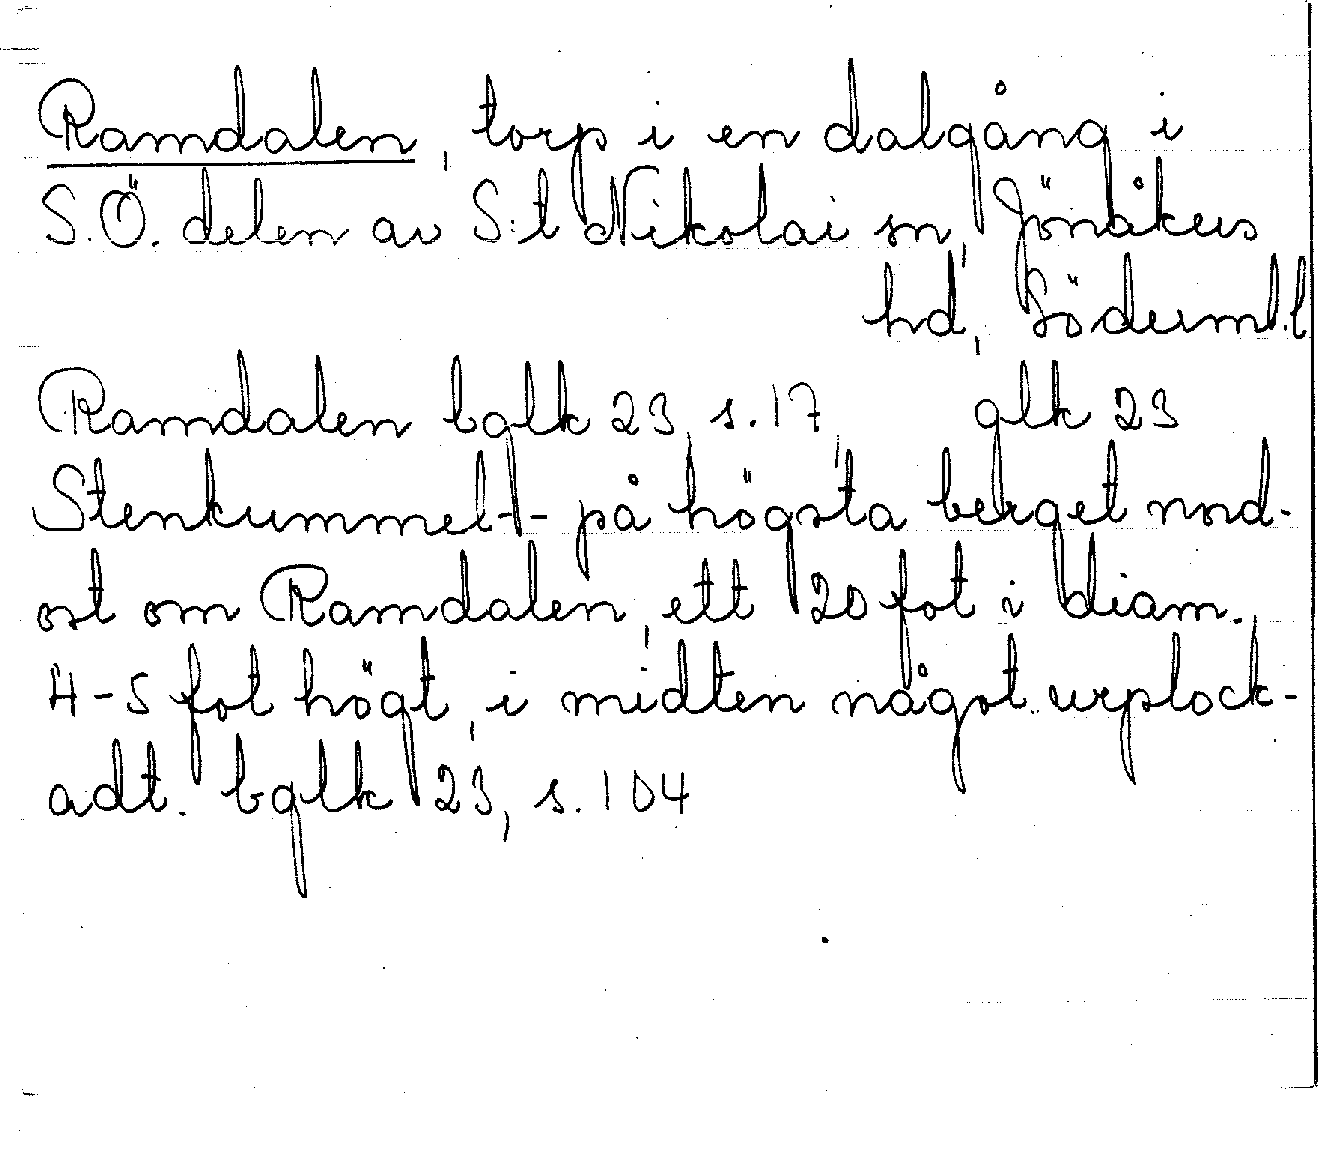 Ramdalen, torp i en dalgång i
S.Ö. delen av S:t Nikolai sn, Jönåkers
hd, Söderml.
Ramdalen bglk 23, s. 17, glk 23
Stenkummel-l- på högsta berget nord-
ost om Ramdalen, ett 20 fot i diam.
4-5 fot högt, i midten något urplock-
adt. bglk 23, s. 104